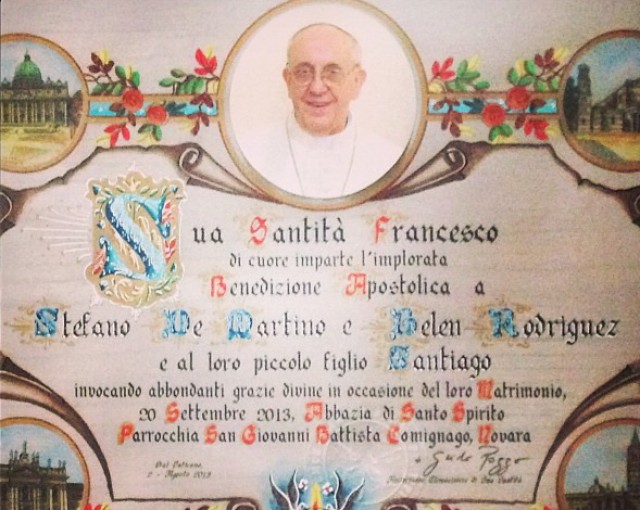 Sua Santità Francesco
di cuore imparte l'implorata
Benedizione Apostolica a
Stefano De Martino e Belen Rodriguez
e al loro piccolo figlio Santiago
invocando abbondanti grazie divine in occasione del loro Matrimonio,
20 Settembre 2013, Abbazia di Santo Spirito
Parrocchia San Giovanni Battista Comignago, Novara
Dal Vaticano,
2 - Agosto 2013
+ Guido Pozzo